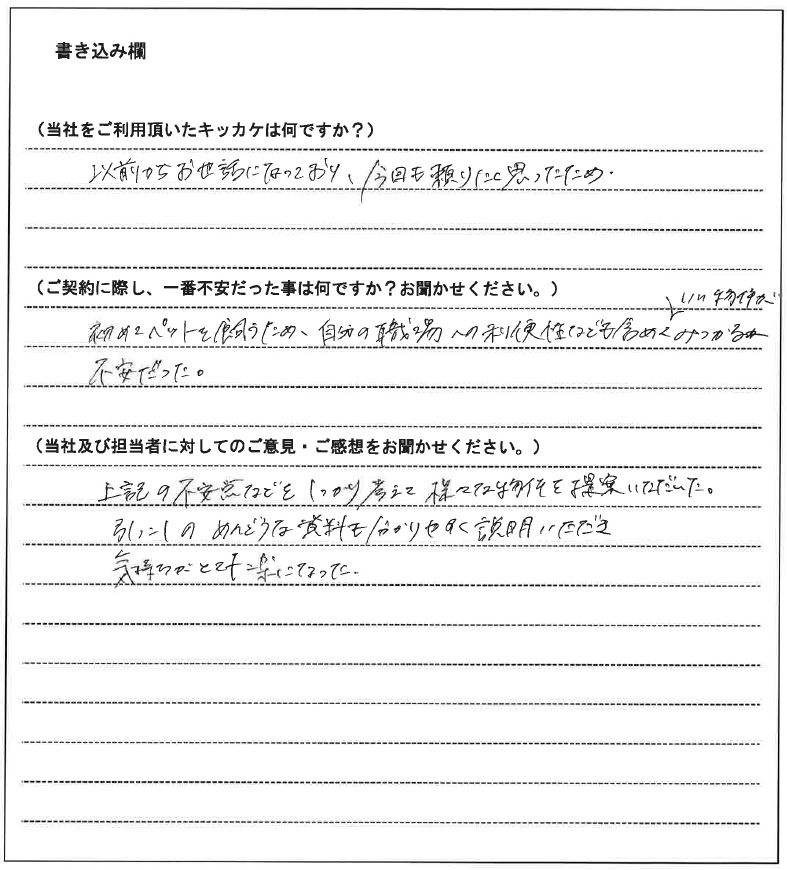 書き込み欄
（当社をご利用頂いたキッカケは何ですか？）
以前からお世話になっており、今回も頼りたいと思ったため。
（ご契約に際し、一番不安だった事は何ですか？お聞かせください。）
いい物件が
初めてペットを飼うため、自分の職場への利便性なども含めてみつかるか
不安だった。
（当社及び担当者に対してのご意見・ご感想をお聞かせください。）
上記の不安点などをしっかり考えて様々な物件を提案いただいた。
引っこしのめんどうな資料も分かりやすく説明いただき
気持ちがとても楽になった。